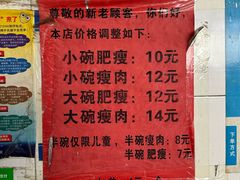 尊敬的新老顾客，你们好，
本店价格调整如下：
小碗肥瘦：10元
小碗瘦肉：12元
大碗肥瘦：12元
大碗瘦肉：14元
半碗仅限儿童，半碗瘦肉：8元
半碗肥瘦：7元
来了